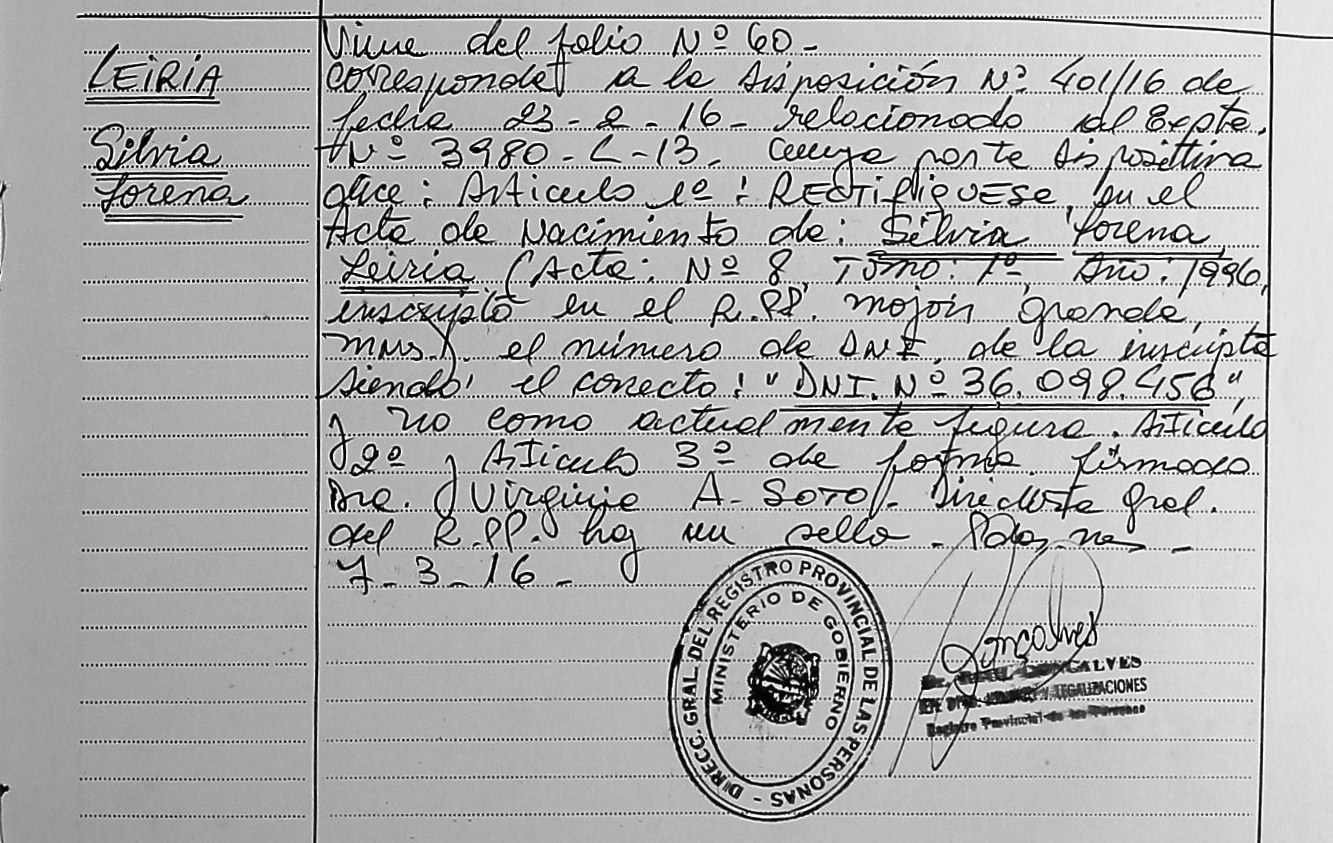 LEIRIA
Silvia
Lorena
Viene del folio Nº 60-
corresponde a la disposición Nº 401/16 de
fecha 23-2-16- relacionado al Expte.
Nº 3980-L-13. cuya parte dispositiva
dice: Articulo 1º: RECTIFIQUESE, en el
Acta de Nacimiento de: Silvia Lorena
Leiria (Acta: Nº 8, Tomo: 1º, Año: 1996,
inscripta en el R.PP. mojón grande,
mns.). el número de DNI, de la inscripta
siendo el correcto: "DNI. Nº 36.098.456",
y no como actualmente figura. Articulo
2º y Articulo 3º de forma. firmado
Dra. Virginia A. SOTO/- Directora Gral.
del R.PP. hay un sello - Pdas, mns -
7-3-16-
DIRECC. GRAL. DEL REGISTRO PROVINCIAL DE LAS PERSONAS -
MINISTERIO DE GOBIERNO
Gonçalves
GONCALVES
Y LEGALIZACIONES
Registro Provincial de las Personas